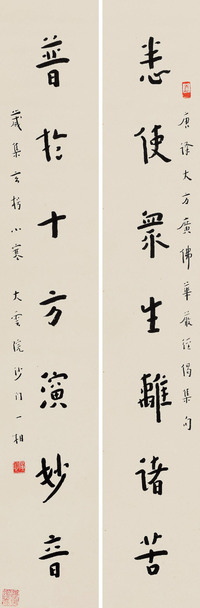 唐譯大方廣佛華嚴經偈集句
悉使衆生離諸苦
普於十方演妙音
歲集玄枵小寒 大雲院沙門一相